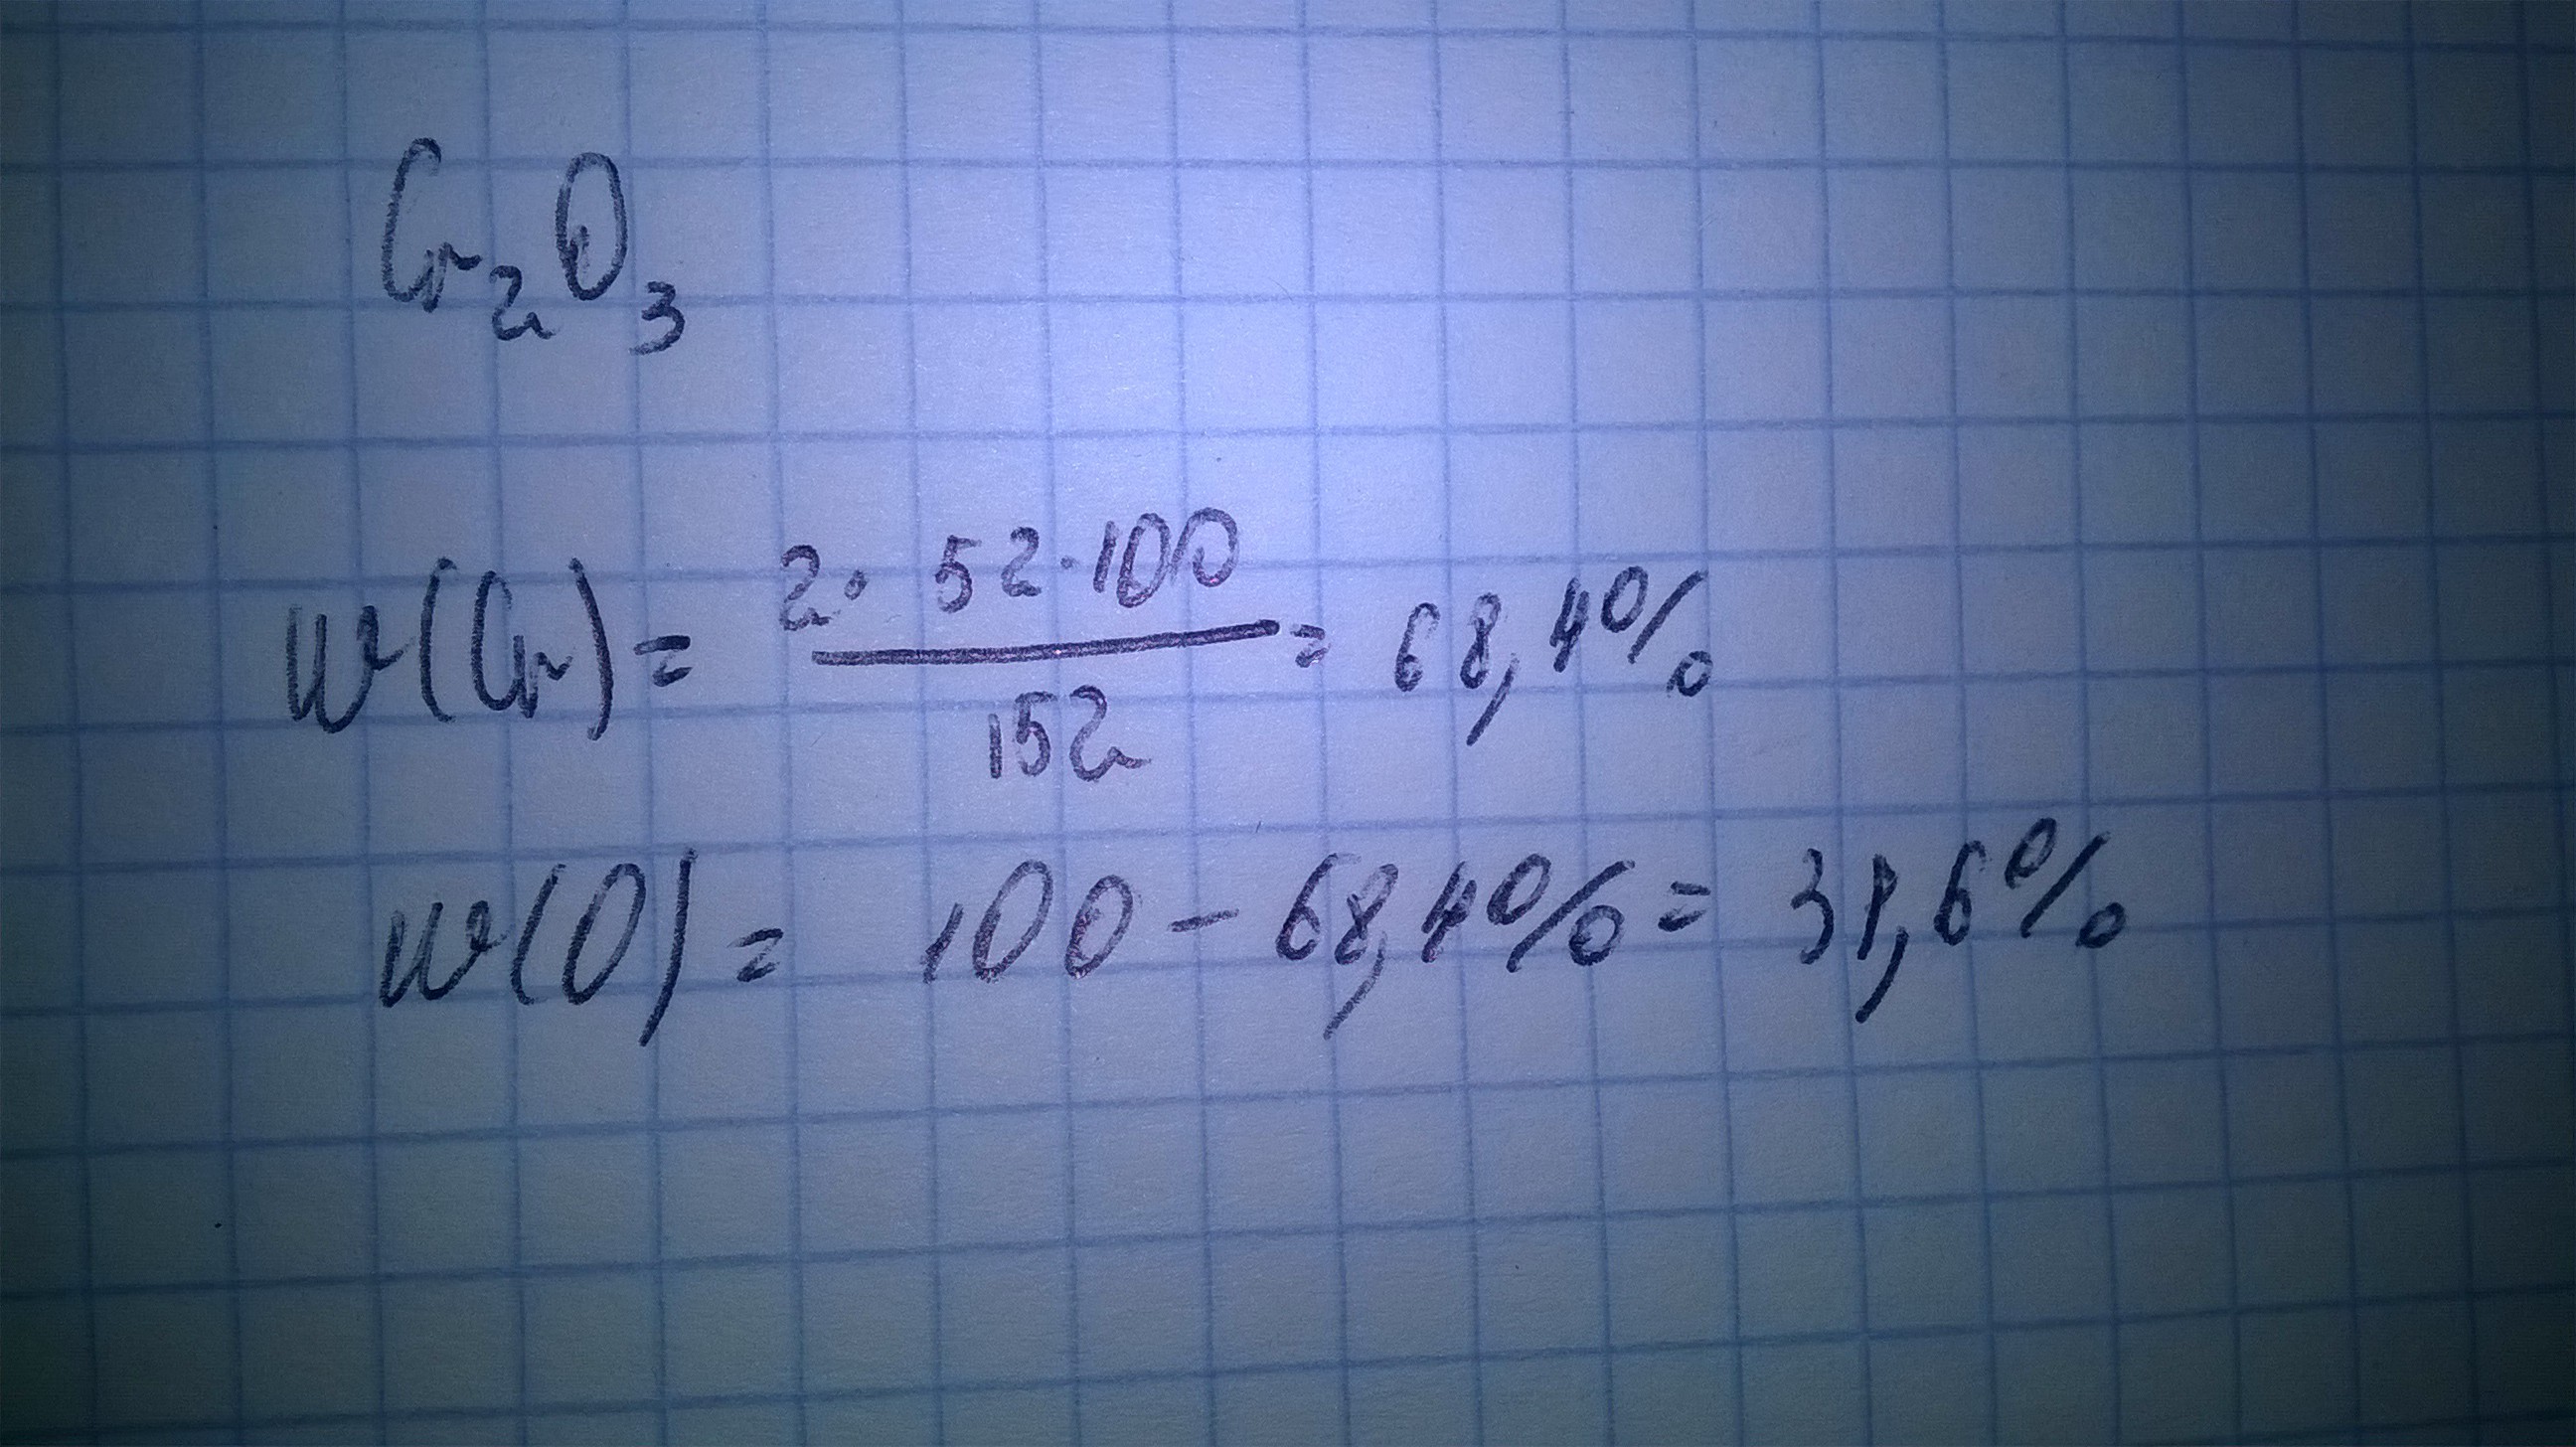 Cr₂O₃
w(Cr) = 2 · 52 · 100 / 152 = 68,4%
w(O) = 100 - 68,4% = 31,6%